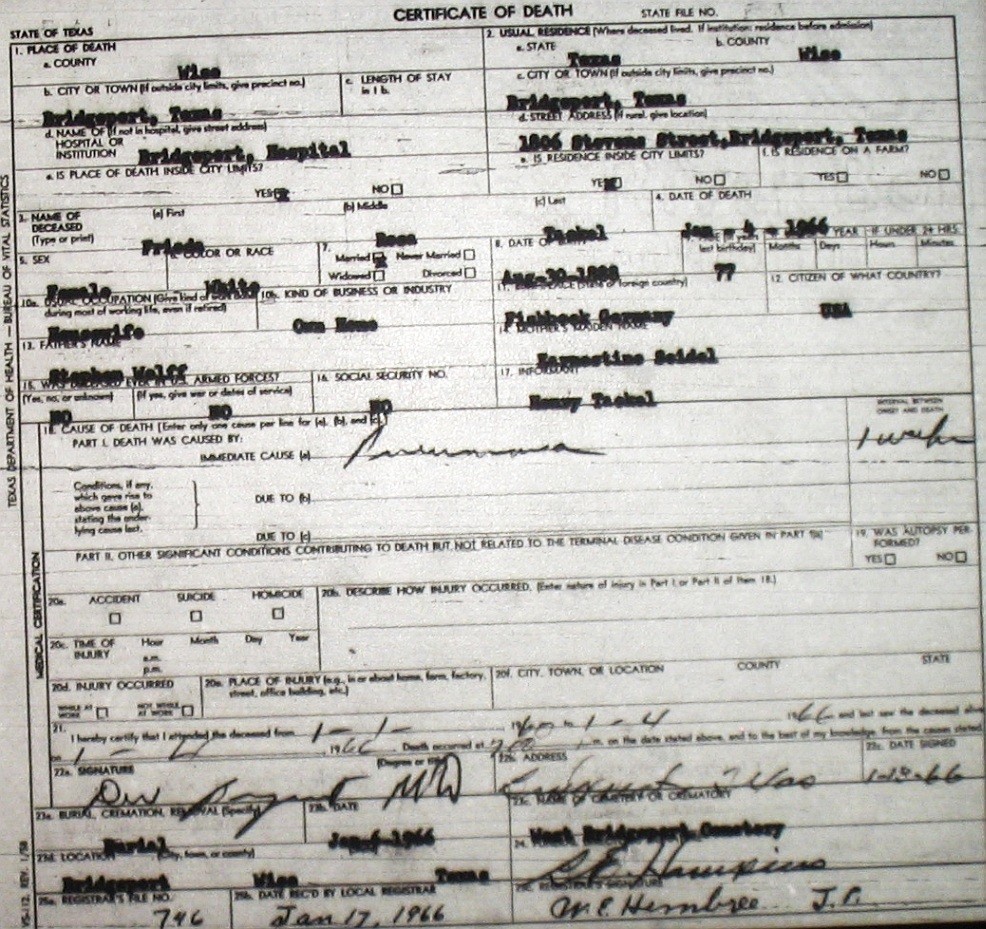 CERTIFICATE OF DEATH
STATE FILE NO.
STATE OF TEXAS
1. PLACE OF DEATH
a. COUNTY
Wise
2. USUAL RESIDENCE (Where deceased lived. If institution: residence before admission)
a. STATE
Texas
b. COUNTY
Wise
b. CITY OR TOWN (If outside city limits, give precinct no.)
Bridgeport, Texas
c. LENGTH OF STAY
in 1 b.
c. CITY OR TOWN (If outside city limits, give precinct no.)
Bridgeport, Texas
d. NAME OF (If not in hospital, give street address)
HOSPITAL OR
INSTITUTION
Bridgeport, Hospital
d. STREET ADDRESS (If rural, give location)
1806 Stevens Street, Bridgeport, Texas
e. IS PLACE OF DEATH INSIDE CITY LIMITS?
YES NO
e. IS RESIDENCE INSIDE CITY LIMITS?
YES NO
f. IS RESIDENCE ON A FARM?
YES NO
3. NAME OF
DECEASED
(Type or print)
(a) First
Frieda
(b) Middle
Rosa
(c) Last
Tackel
4. DATE OF DEATH
Jan - 4 - 1966
5. SEX
Female
COLOR OR RACE
White
7.
Married Never Married
Widowed Divorced
8. DATE OF
Aug-30-1888
last birthday)
77
YEAR IF UNDER 24 HRS.
Months Days Hours Minutes
10a. USUAL OCCUPATION (Give kind of work
during most of working life, even if retired)
Housewife
10b. KIND OF BUSINESS OR INDUSTRY
Own Home
11. (State or foreign country)
Fishbeck Germany
12. CITIZEN OF WHAT COUNTRY?
USA
13. FATHER'S NAME
Stephen Wolff
14. MOTHER'S MAIDEN NAME
Earnestine Seidel
15. WAS DECEASED EVER IN U.S. ARMED FORCES?
(Yes, no, or unknown)
NO
(If yes, give war or dates of service)
NO
16. SOCIAL SECURITY NO.
NO
17. INFORMANT
Henry Tackel
18. CAUSE OF DEATH [Enter only one cause per line for (a), (b), and (c).]
PART I. DEATH WAS CAUSED BY:
IMMEDIATE CAUSE (a)
Pneumonia
INTERVAL BETWEEN
ONSET AND DEATH
1 week
Conditions, if any,
which gave rise to
above cause (a),
stating the under-
lying cause last.
DUE TO (b)
DUE TO (c)
PART II. OTHER SIGNIFICANT CONDITIONS CONTRIBUTING TO DEATH BUT NOT RELATED TO THE TERMINAL DISEASE CONDITION GIVEN IN PART I(a)
19. WAS AUTOPSY PER-
FORMED?
YES NO
20a. ACCIDENT SUICIDE HOMICIDE
20b. DESCRIBE HOW INJURY OCCURRED. (Enter nature of injury in Part I or Part II of Item 18.)
20c. TIME OF
INJURY
Hour Month Day Year
a.m.
p.m.
20d. INJURY OCCURRED
WHILE AT
WORK
NOT WHILE
AT WORK
20e. PLACE OF INJURY (e.g., in or about home, farm, factory,
street, office building, etc.)
20f. CITY, TOWN, OR LOCATION COUNTY STATE
21. I hereby certify that I attended the deceased from 1-1- 1960 to 1-4 1966 and last saw the deceased alive
on 1-4 1966 Death occurred at m. on the date stated above, and to the best of my knowledge, from the causes stated
22a. SIGNATURE
(Degree or title)
MD
22b. ADDRESS
22c. DATE SIGNED
23a. BURIAL, CREMATION, REMOVAL (Specify)
Burial
23b. DATE
Jan-6-1966
23c. NAME OF CEMETERY OR CREMATORY
West Bridgeport Cemetery
23d. LOCATION (City, town, or county)
Bridgeport Wise Texas
24.
L.E. Hawkins
25a. REGISTRAR'S FILE NO.
746
25b. DATE REC'D BY LOCAL REGISTRAR
Jan 17, 1966
25c. REGISTRAR'S SIGNATURE
W.E. Hembree J.P.
TEXAS DEPARTMENT OF HEALTH — BUREAU OF VITAL STATISTICS
MEDICAL CERTIFICATION
VS-112, REV. 1/58